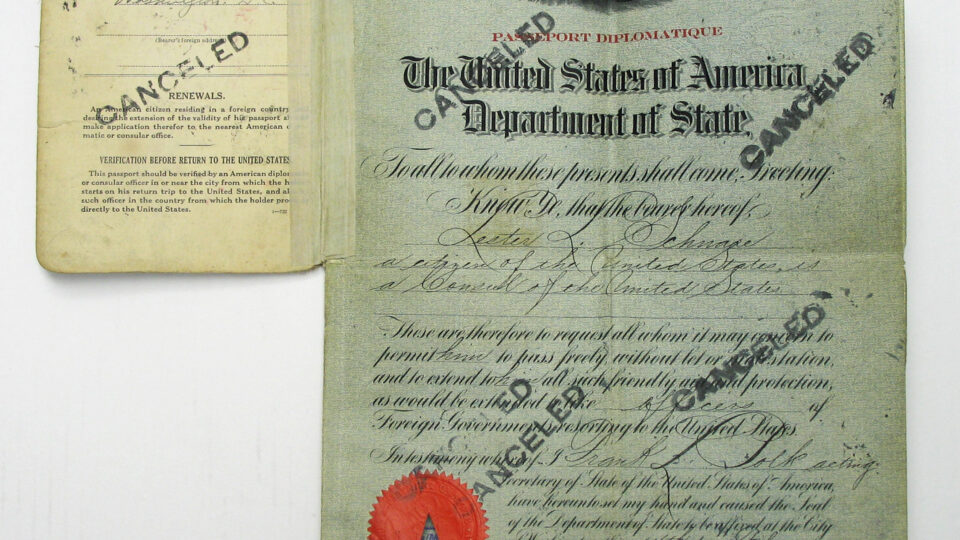 Washington, D.C.
(Bearer's foreign address)
RENEWALS.
An American citizen residing in a foreign country
desiring the extension of the validity of his passport
make application therefor to the nearest American
matic or consular office.
VERIFICATION BEFORE RETURN TO THE UNITED STATES
This passport should be verified by an American diplo
or consular officer in or near the city from which the
starts on his return trip to the United States, and
such officer in the country from which the holder
directly to the United States.
CANCELED
PASSEPORT DIPLOMATIQUE
The United States of America,
Department of State,
To all to whom these presents shall come, Greeting:
Know Ye, that the bearer hereof,
Lester L. Schnare
a citizen of the United States, is
a Consul of the United States
These are therefore to request all whom it may concern to
permit him to pass freely without let or molestation,
and to extend to him all such friendly aid and protection,
as would be extended to like officers of
Foreign Governments resorting to the United States.
In testimony whereof, I Frank L. Polk acting
Secretary of State of the United States of America,
have hereunto set my hand and caused the Seal
of the Department of State to be affixed at the City
CANCELED
CANCELED
CANCELED
CANCELED
CANCELED